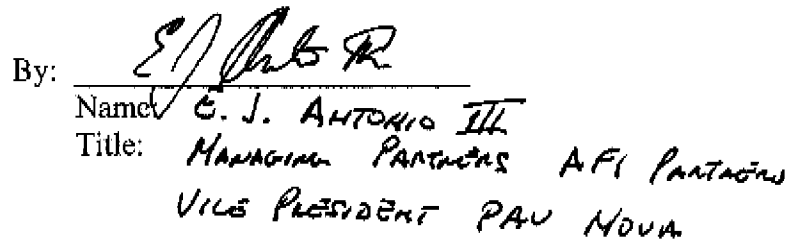 By: E J Antonio III
Name: E. J. ANTONIO III
Title: MANAGING PARTNERS AFI PARTNERS
VICE PRESIDENT PAU NOVA